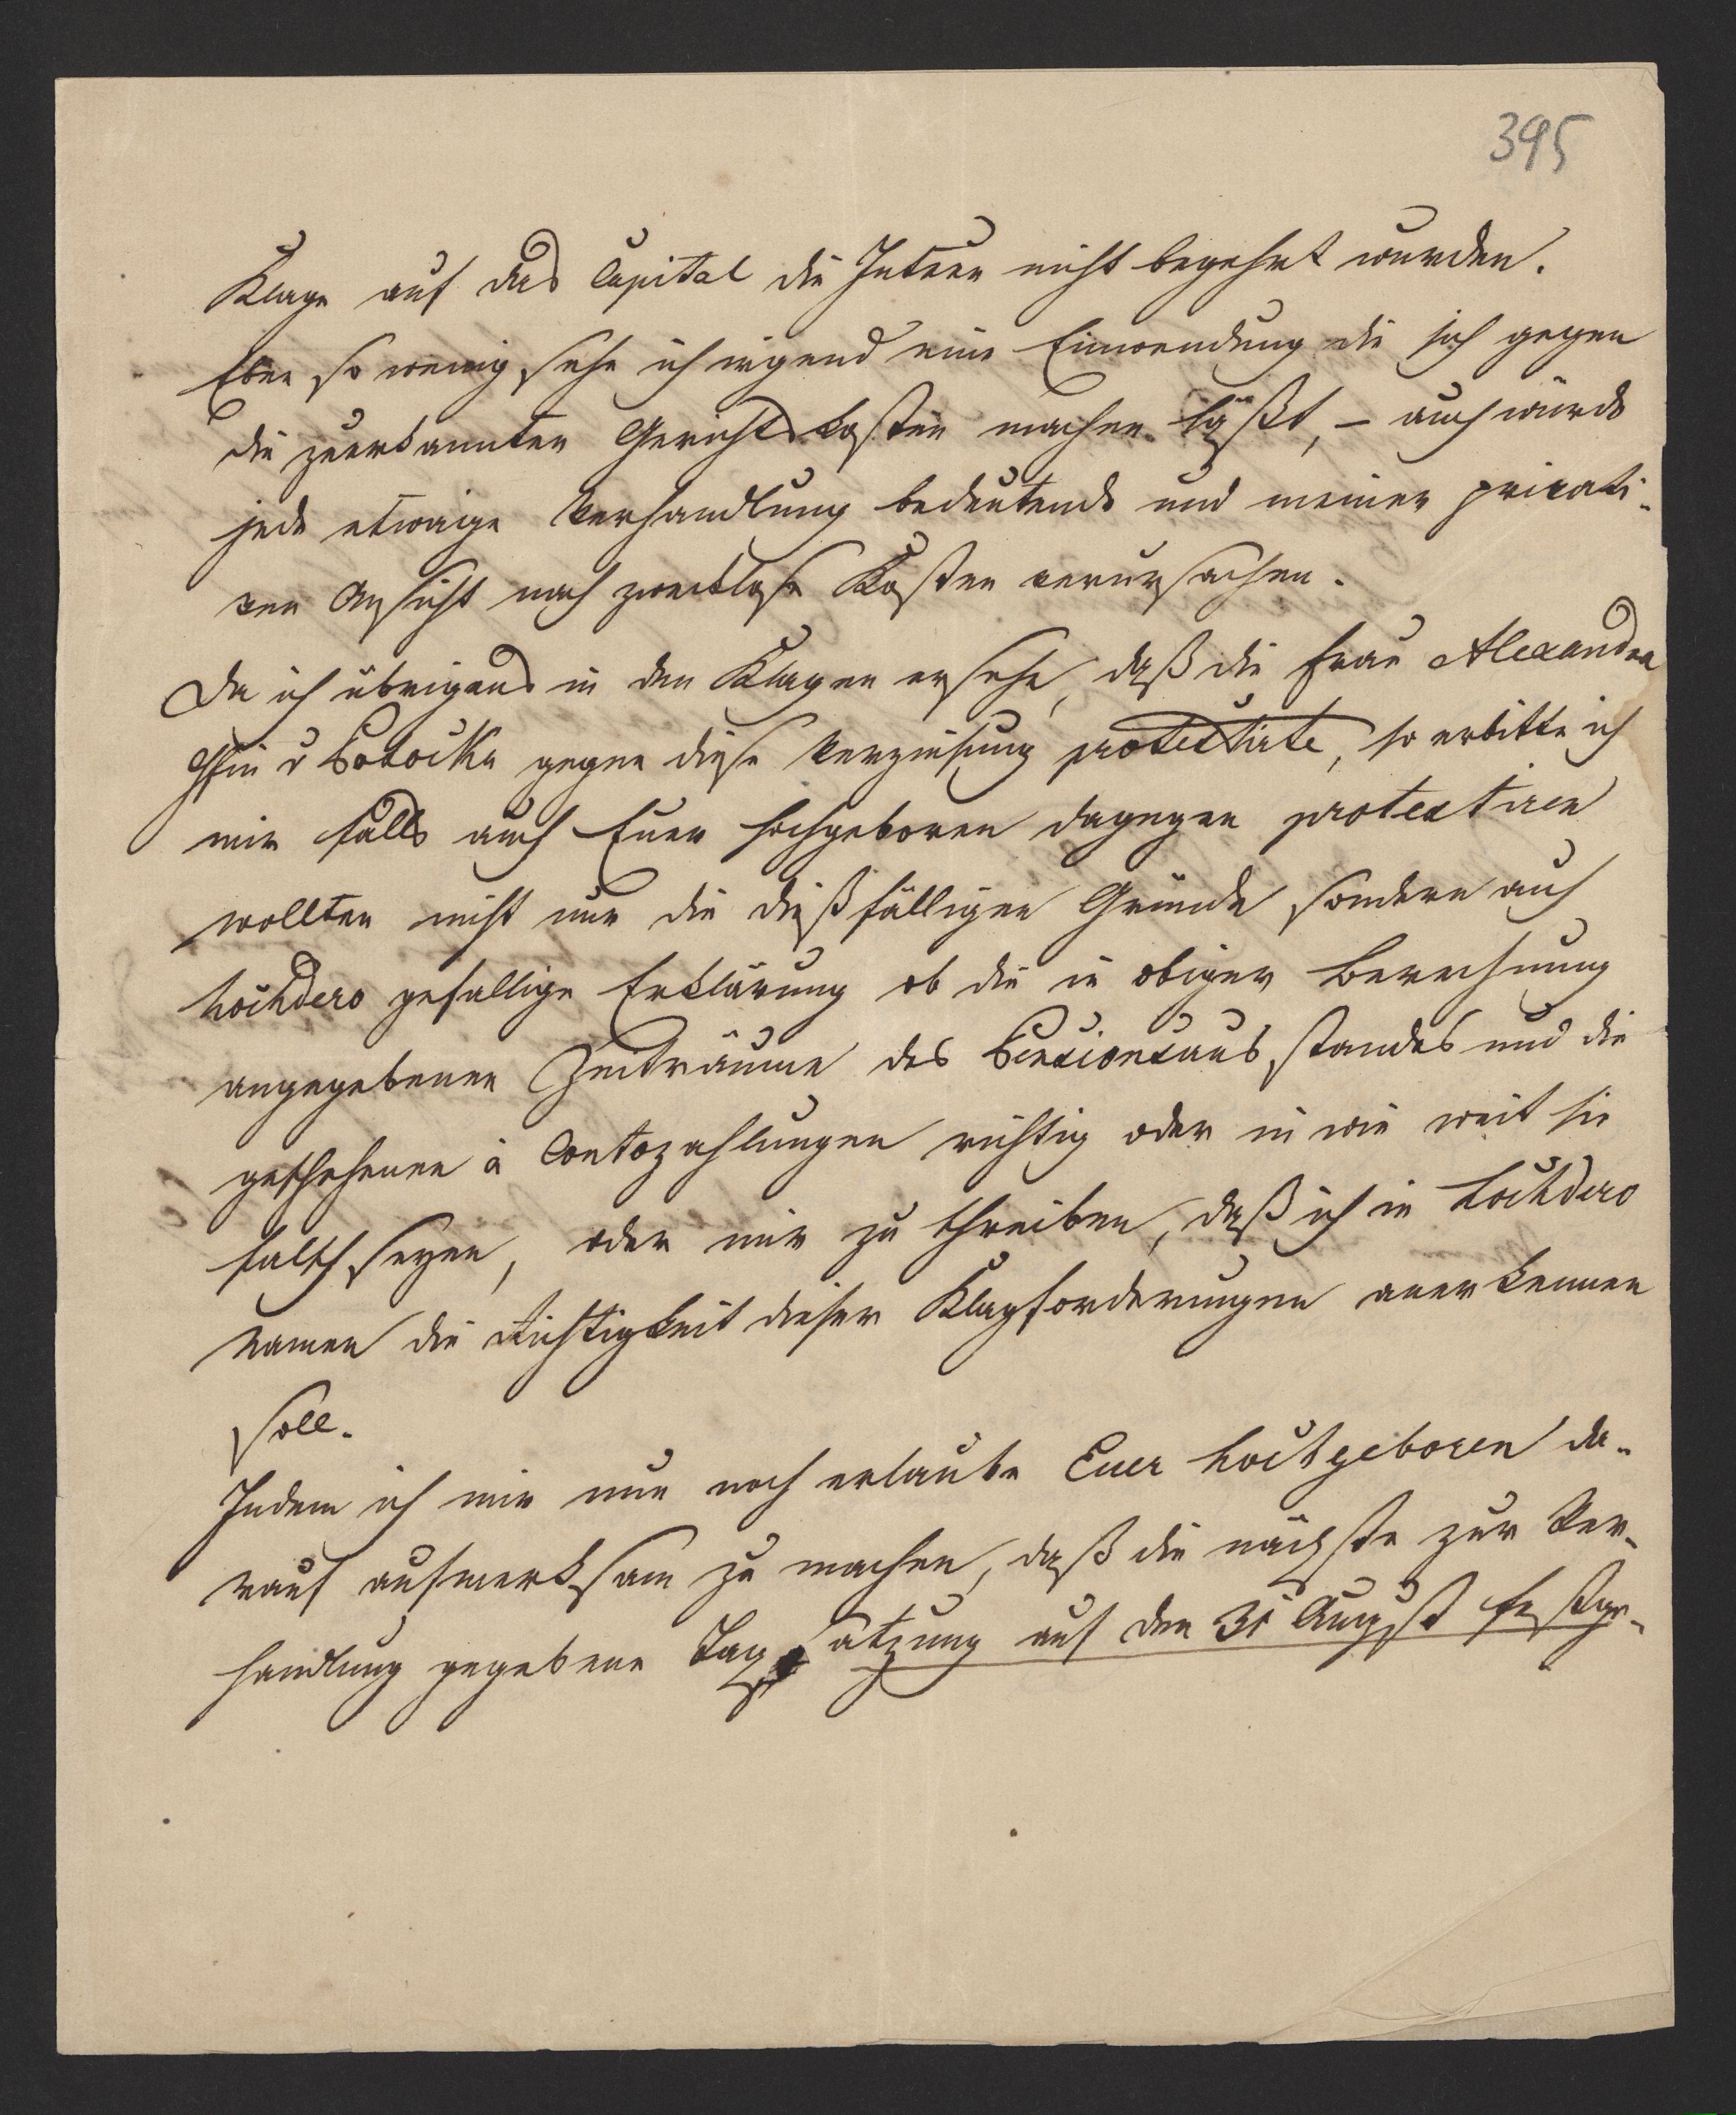 395
Klage auf das Capital die Intereen nicht begehrt wurden.
Eben so wenig sehe ich irgend eine Einwendung die sich gegen
die zuerkannten Gerichtskosten machen läßt, – auch würde
jede etwaige Verhandlung bedeutende und meiner privati-
ven Ansicht nach zwecklose Kosten verursachen.
Da ich übrigens in den Klagen ersehe, daß die Frau Alexandra
Gfin v Potocka gegen diese Verzinsung protestirte, so erbitte ich
mir falls auch Euer Hochgeboren dagegen protestiren
wollten nicht nur die dießfälligen Gründe sondern auch
hochdero gefällige Erklärung ob die in obiger Berechnung
angegebenen Zeiträume des Pensionsausstandes und die
geschehenen à Contozahlungen richtig oder in wie weit sie
falsch seyen, oder mir zu schreiben, daß ich in Hochdero
Namen die Richtigkeit dieser Klagforderungen anerkennen
soll.
Indem ich mir nun noch erlaube Euer Hochgeboren da-
rauf aufmerksam zu machen, daß die nächste zur Ver-
handlung gegebene Tagsatzung auf den 31 August festge-